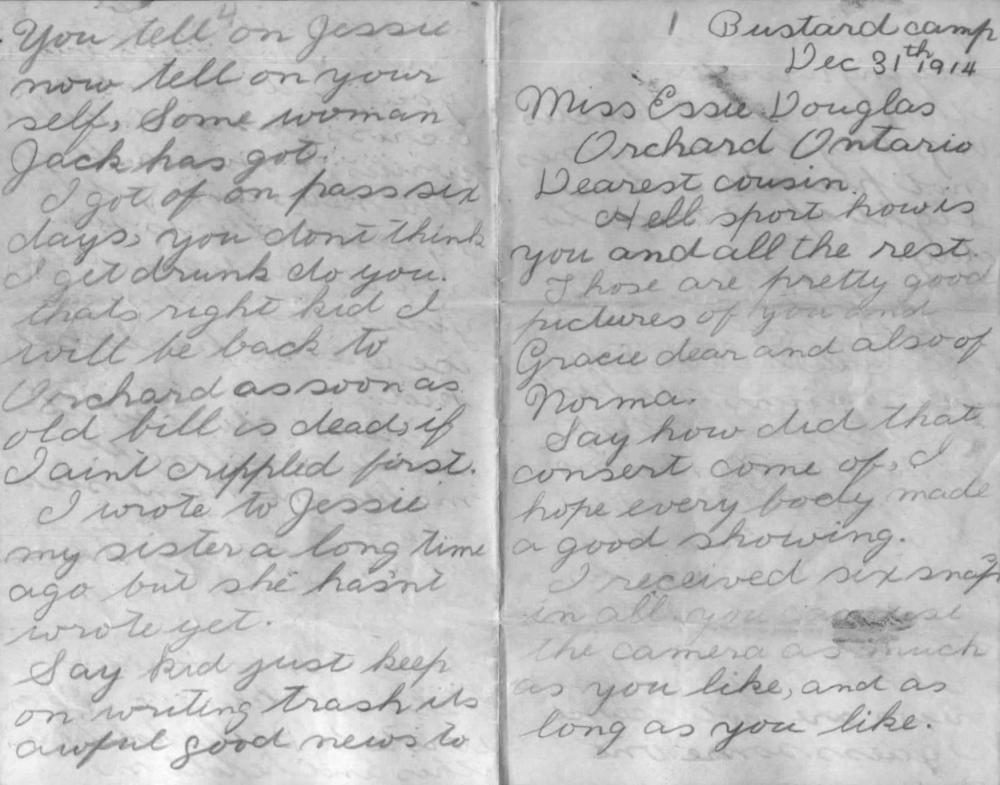 1 Bustard camp
Dec 31th 1914
Miss Essie Douglas
Orchard Ontario
Dearest cousin.
Hell sport how is
you and all the rest.
Those are pretty good
pictures of you and
Gracie dear and also of
Norma.
Say how did that
consert come of, I
hope every body made
a good showing.
I received six snaps
in all you can use
the camera as much
as you like, and as
long as you like.
4
You tell on Jessie
now tell on your
self, Some woman
Jack has got.
I got of on pass six
days, you dont think
I get drunk do you.
thats right kid I
will be back to
Orchard as soon as
old bill is dead, if
I aint crippled first.
I wrote to Jessie
my sister a long time
ago but she hasnt
wrote yet.
Say kid just keep
on writing trash its
awful good news to